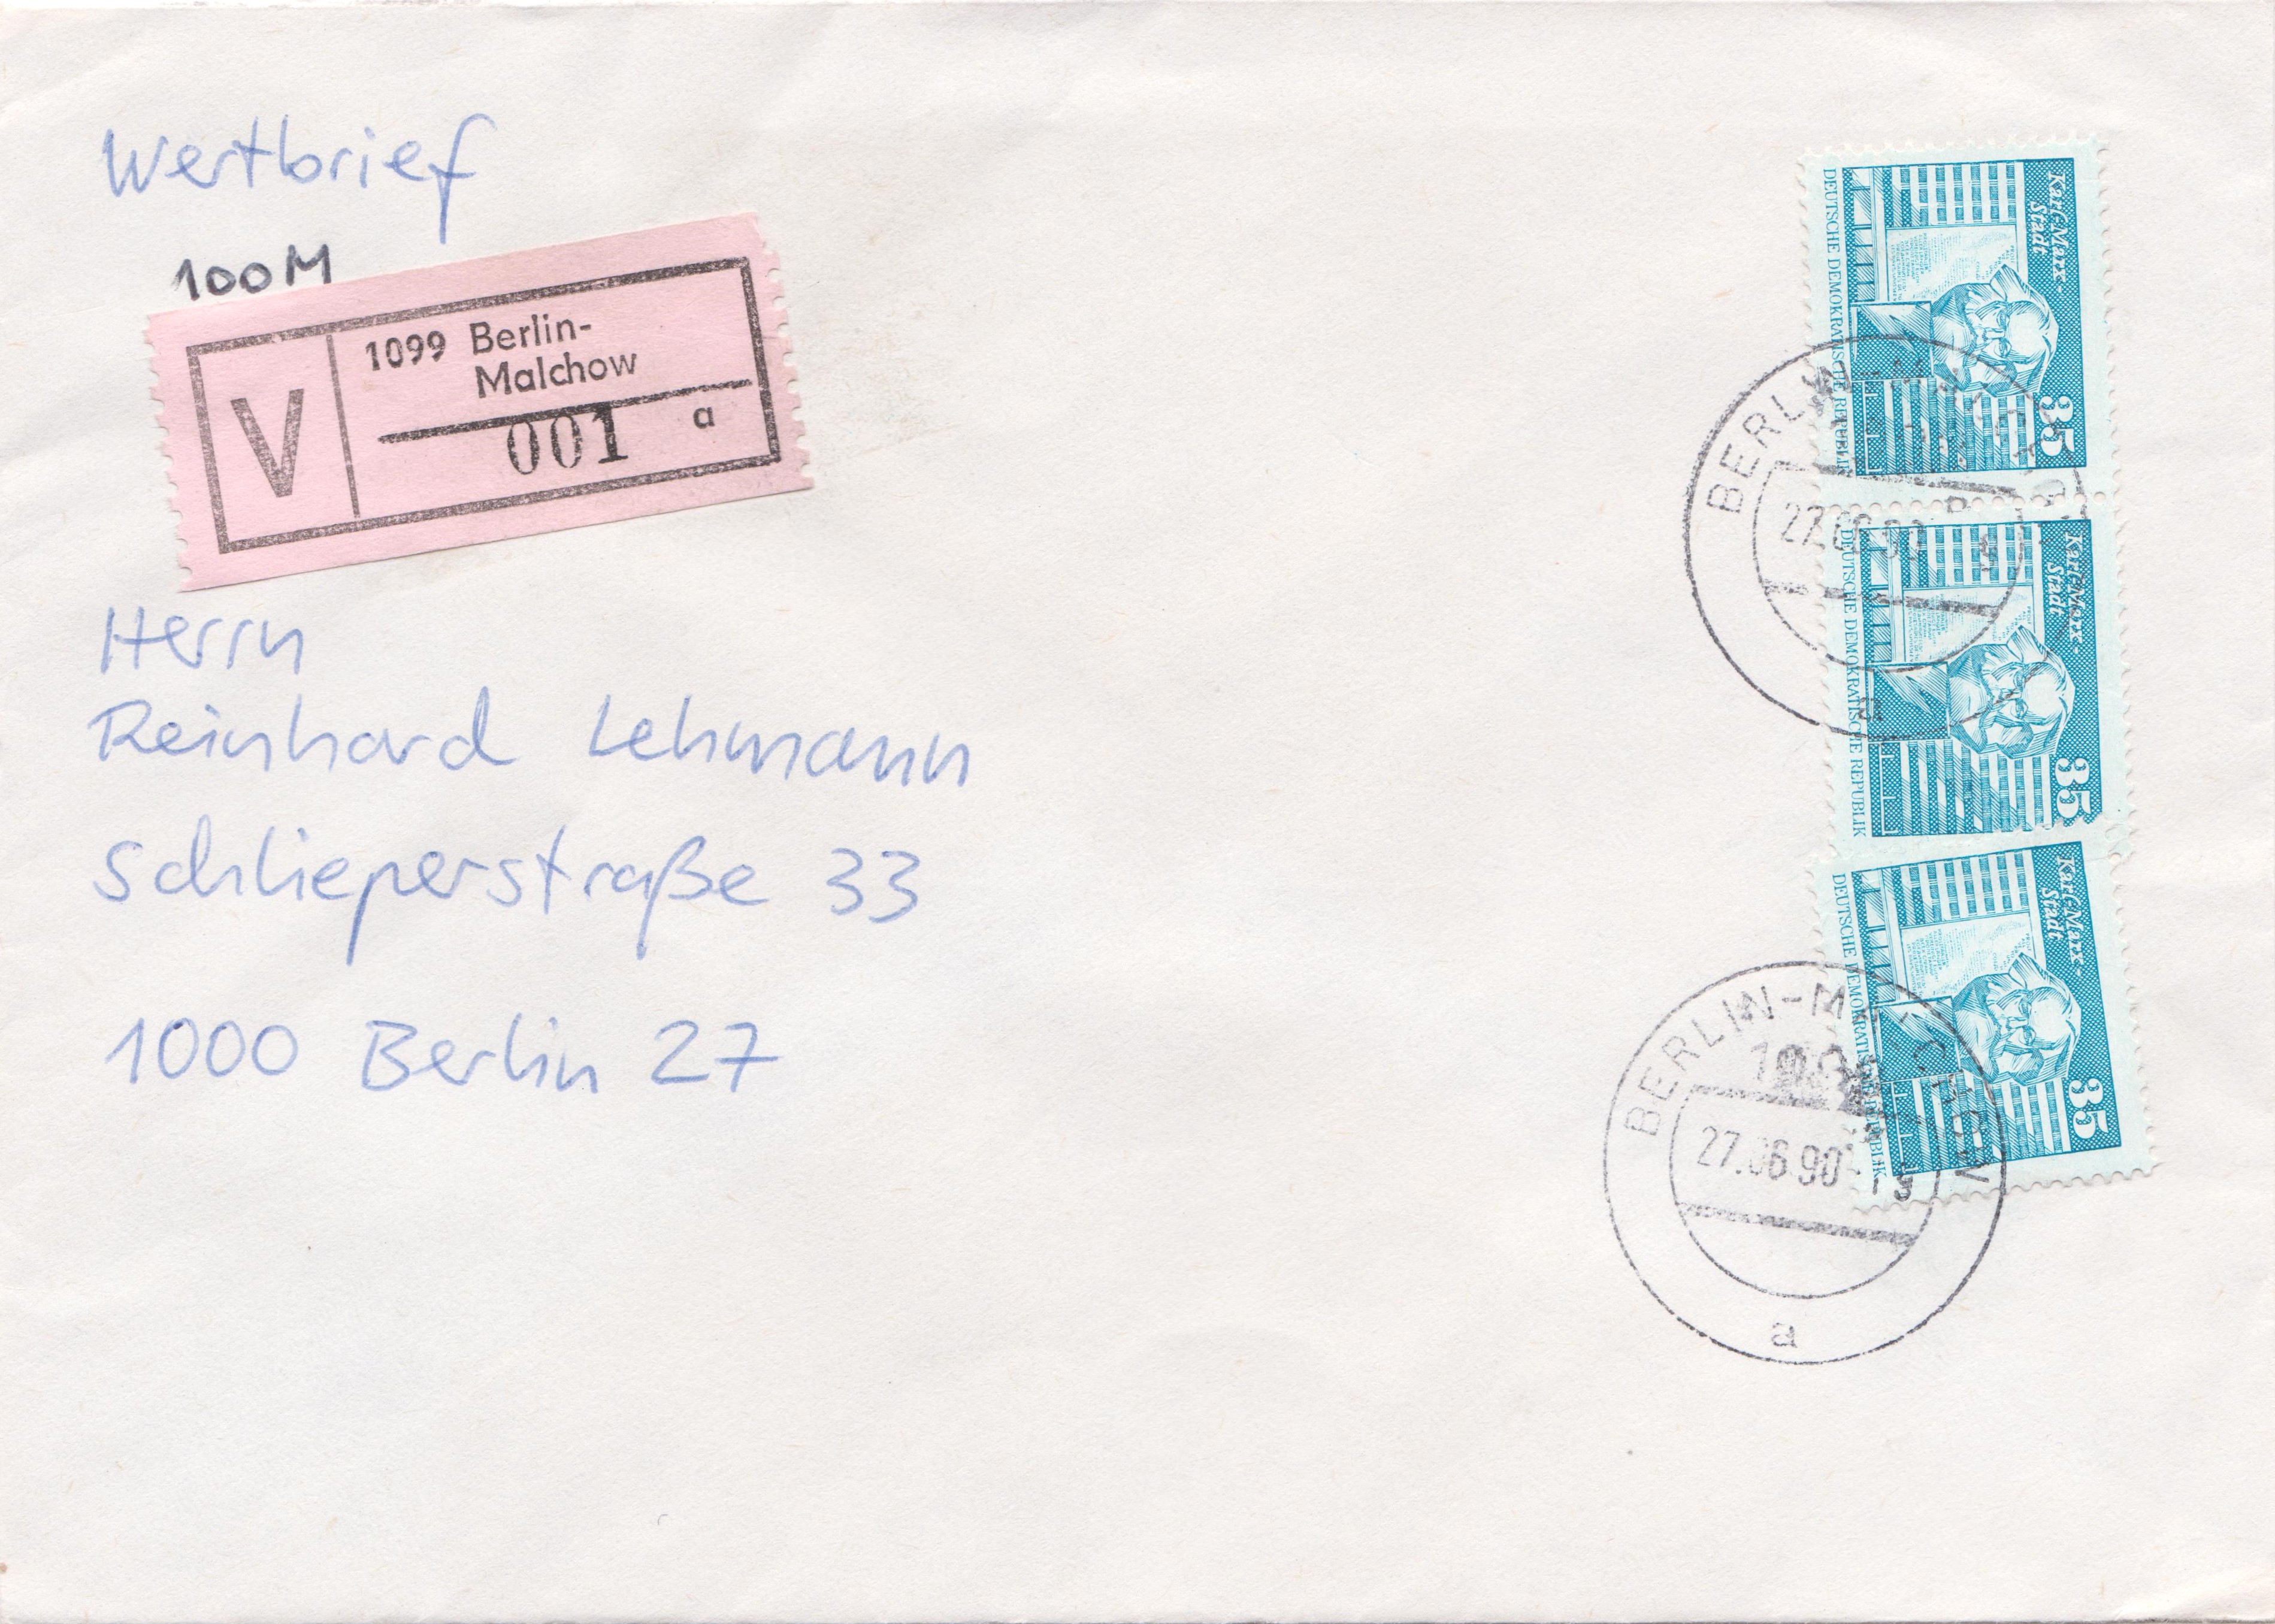 Wertbrief
100M
V
1099 Berlin-
Malchow
001 a
Herrn
Reinhard Lehmann
Schlieperstraße 33
1000 Berlin 27
Karl-Marx-
Stadt
35
DEUTSCHE DEMOKRATISCHE REPUBLIK
BERLIN
27.06.90
a
Karl-Marx-
Stadt
35
DEUTSCHE DEMOKRATISCHE REPUBLIK
Karl-Marx-
Stadt
35
DEUTSCHE DEMOKRATISCHE REPUBLIK
BERLIN-MALCHOW
27.06.90
a